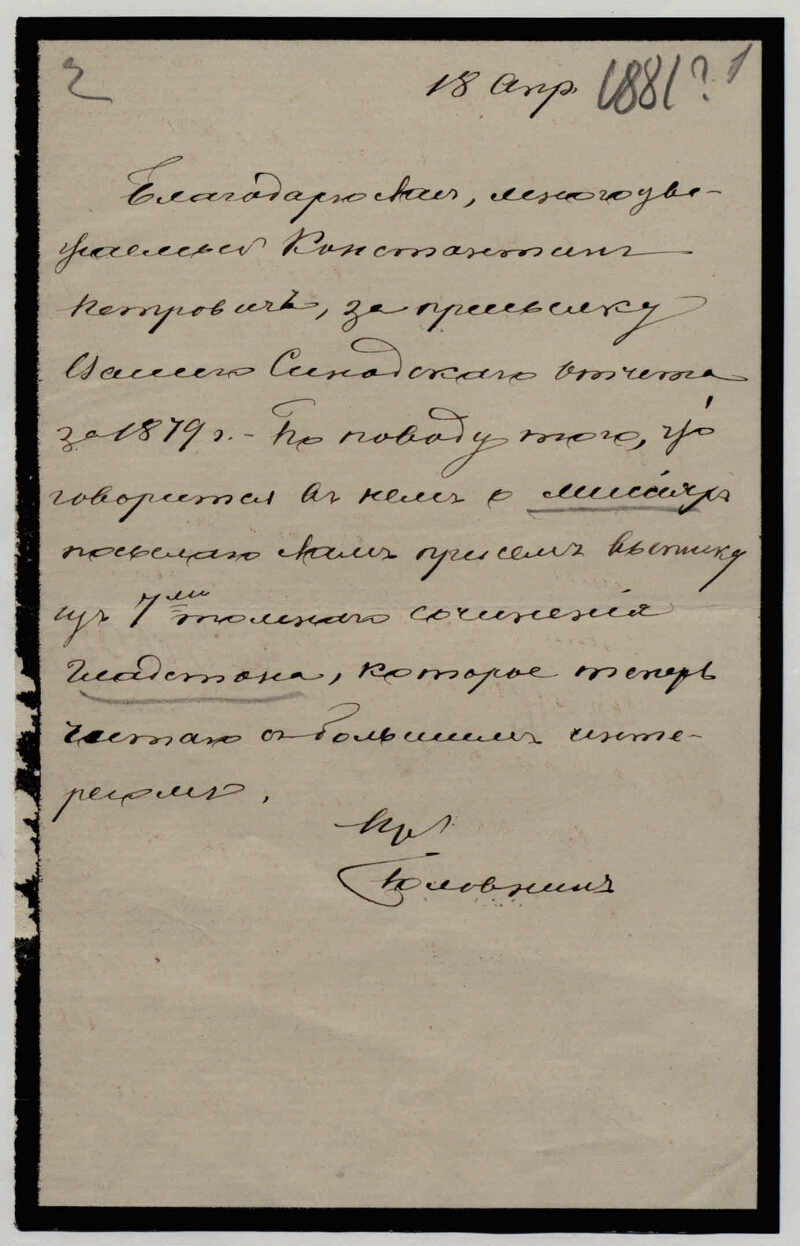 2
18 Апр. 1881? 1
Благодарю Вамъ, многоува-
жаемый Константинъ
Петровичъ, за присылку
Вашего Синодскаго отчета
за 1879 г. - По поводу того, что
говорится въ немъ о миссіяхъ
посылаю Вамъ при семъ выписку
изъ 7ми томнаго сочиненія
Гладстона, которое теперь
читаю съ большимъ инте-
ресомъ.
Головнинъ